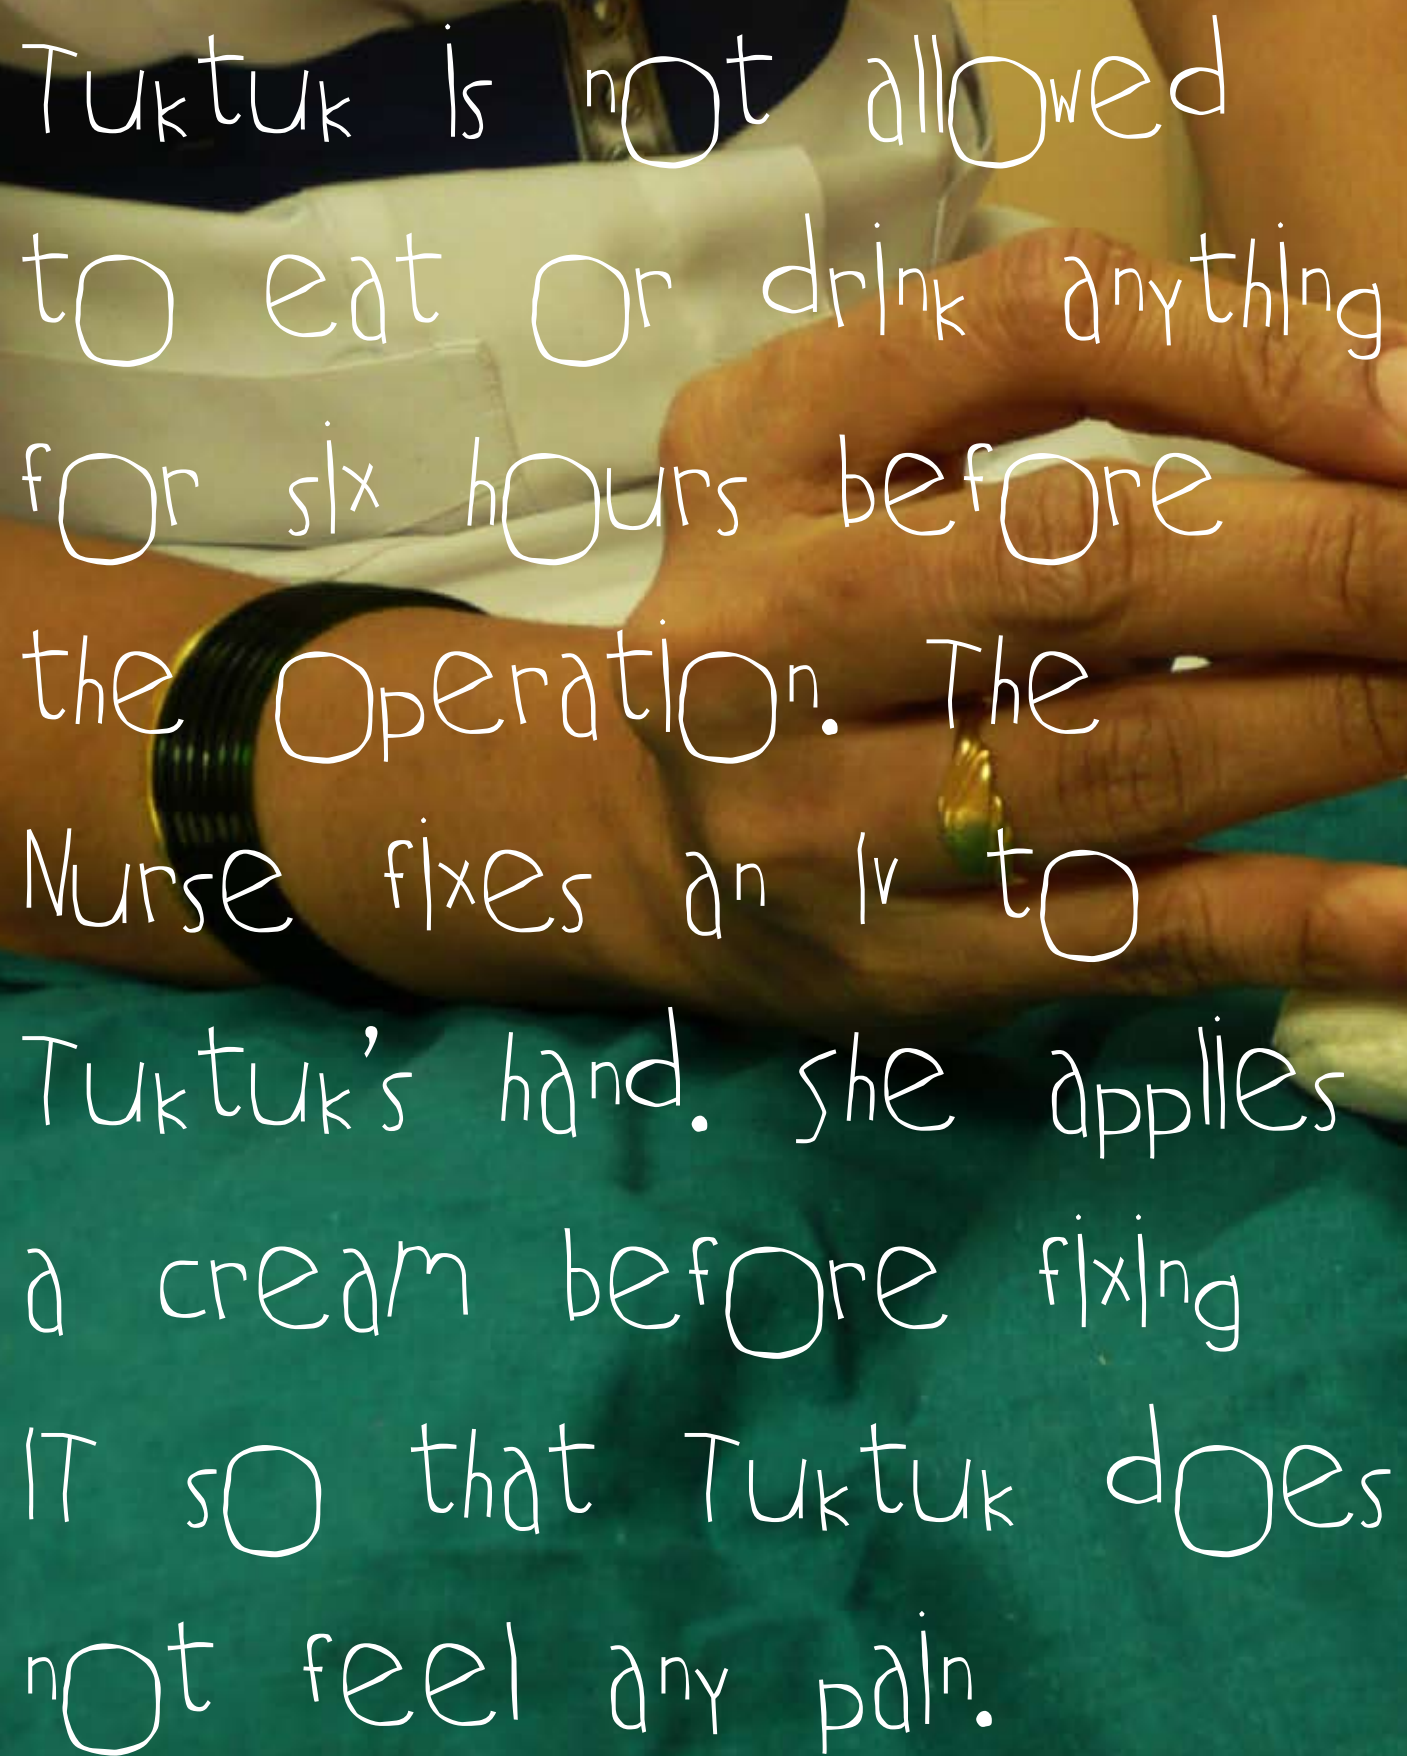 Tuktuk is not allowed
to eat or drink anything
for six hours before
the operation. The
Nurse fixes an Iv to
Tuktuk's hand. She applies
a cream before fixing
IT so that Tuktuk does
not feel any pain.